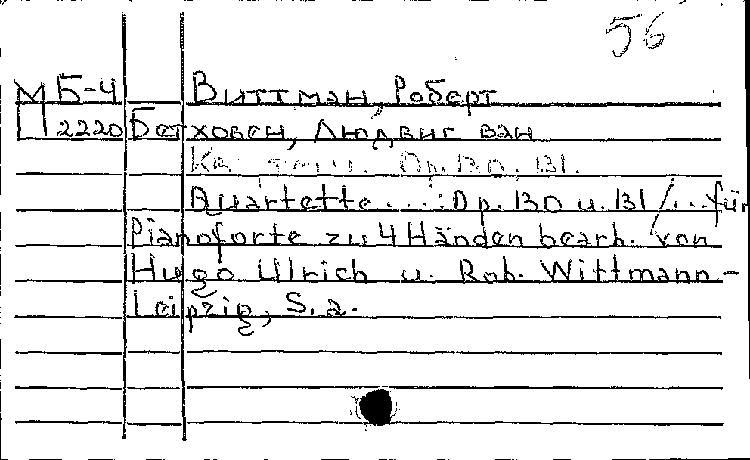 56
М Б-4 Виттман, Роберт
П 2220 Бетховен, Людвиг ван
Op. 130, 131.
Quartette ... : Op. 130 u. 131 / ... für
Pianoforte zu 4 Händen bearb. von
Hugo Ulrich u. Rob. Wittmann -
Leipzig, S. a.